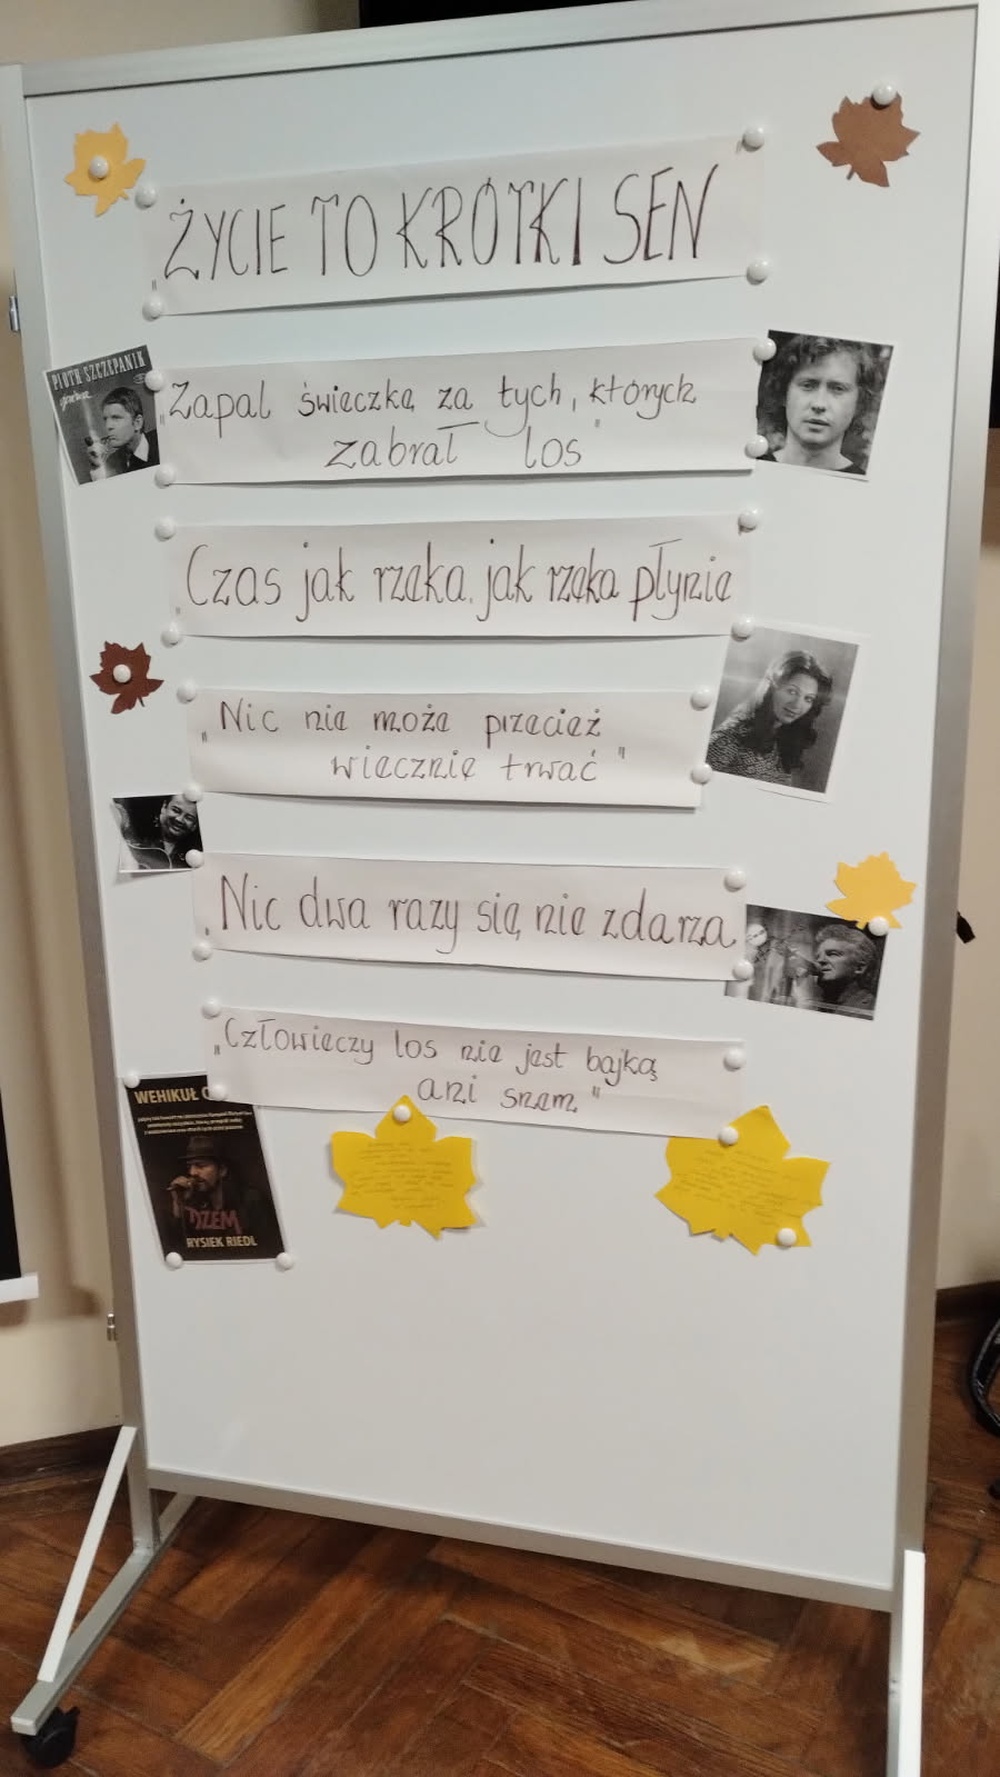 „ŻYCIE TO KRÓTKI SEN
PIOTR SZCZEPANIK
„Zapal świeczkę za tych, których
zabrał los"
„Czas jak rzeka, jak rzeka płynie
„Nic nie może przecież
wiecznie trwać"
„Nic dwa razy się nie zdarza
„Człowieczy los nie jest bajką
ani snem"
WEHIKUŁ
DŻEM
RYSIEK RIEDL